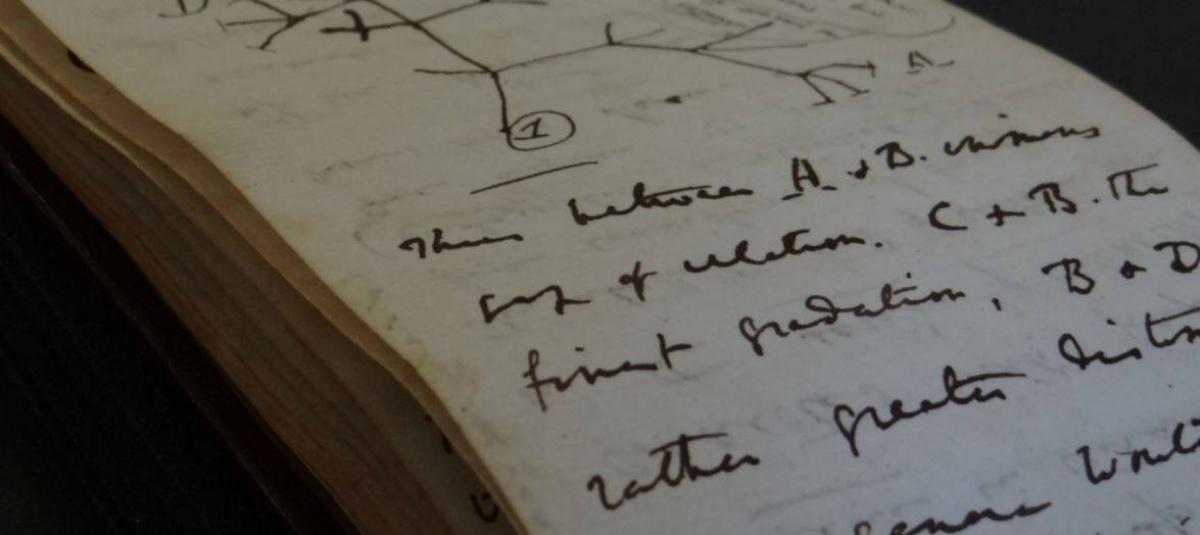 D
A
1
Thus between A. & B. immens
gap of relation. C + B. The
finest gradation, B & D
rather greater distin
genera would